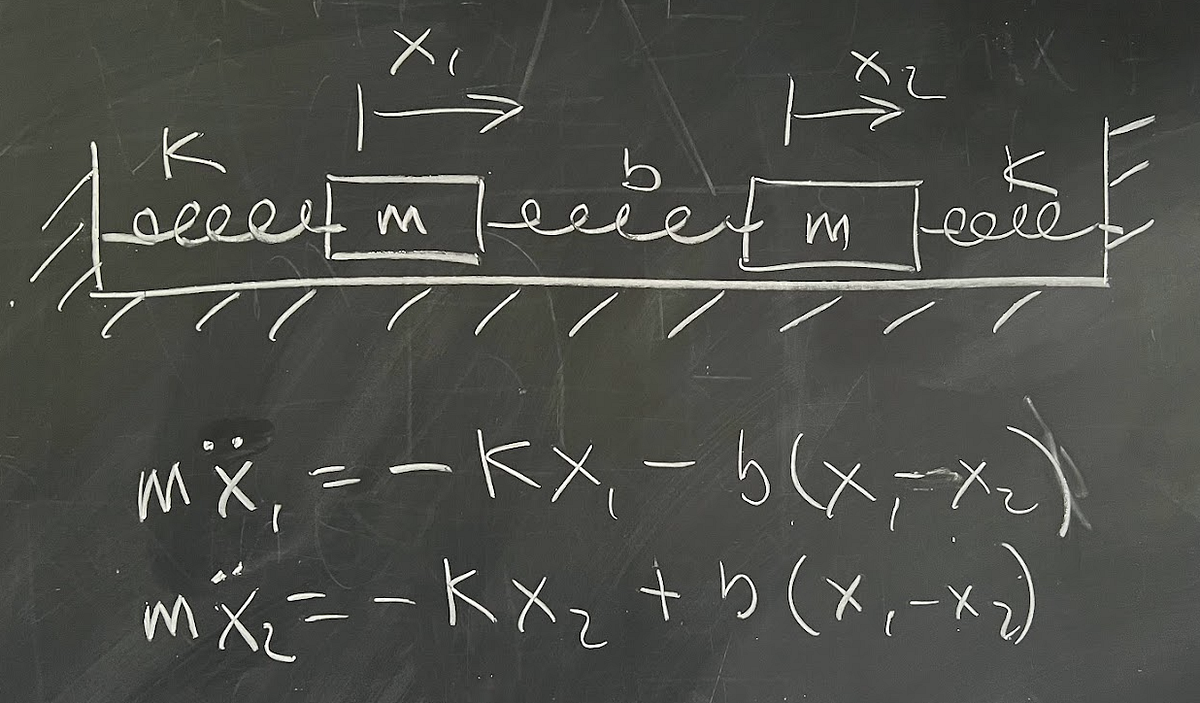 x₁ x₂
K b K
m m
mẍ₁ = - Kx₁ - b(x₁-x₂)
mẍ₂ = - Kx₂ + b(x₁-x₂)